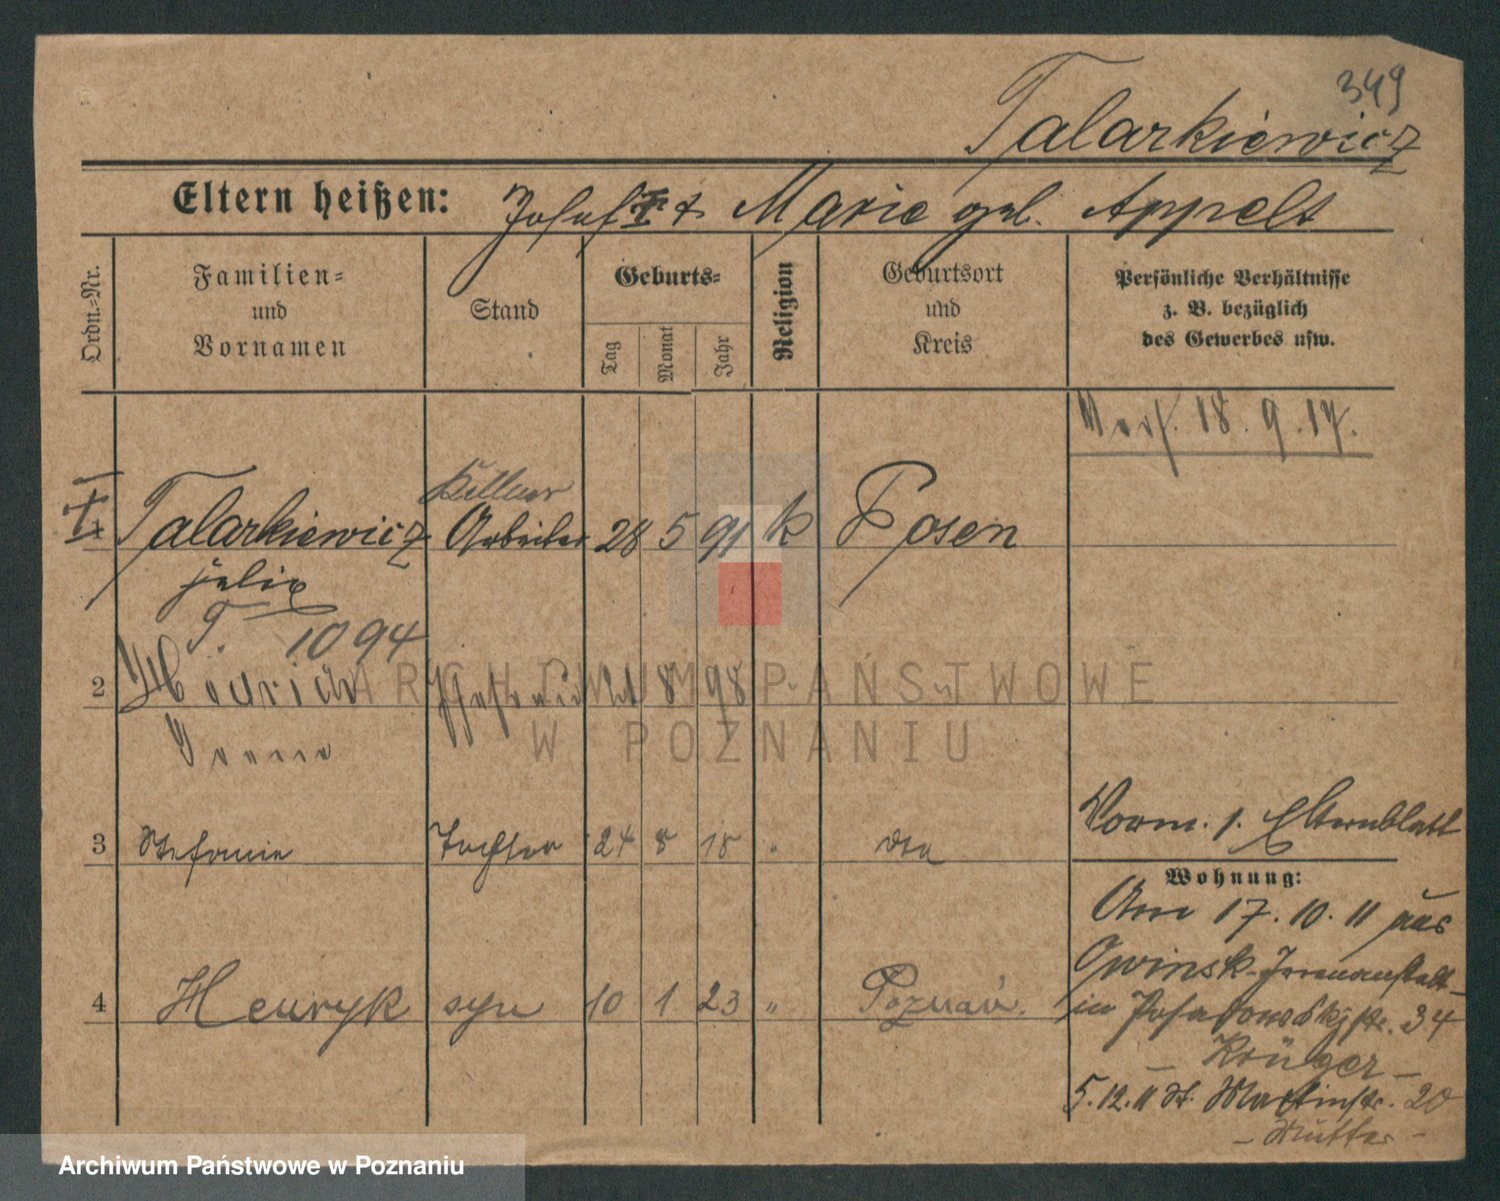 349
Talarkiewicz
Eltern heißen: Josef † & Marie geb. Appelt
Ordn.-Nr.
Familien-
und
Vornamen
Stand
Geburts-
Tag
Monat
Jahr
Religion
Geburtsort
und
Kreis
Persönliche Verhältnisse
z. B. bezüglich
des Gewerbes usw.
18. 9. 17.
Kellner
1 Talarkiewicz Arbeiter 28 5 91 k Posen
Felix
T. 1094
2 98
ARCHIWUM PAŃSTWOWE
W POZNANIU
Vorm. s. Elternblatt
3 Stefanie Tochter 24 8 18 "
Wohnung:
Am 17. 10. 11 aus
Owinsk-Irrenanstalt
4 Henryk syn 10 1 23 " Poznań.
in Posadowskystr. 34
- Krüger -
5. 12. 11 St. Martinstr. 20
- Mutter -
Archiwum Państwowe w Poznaniu